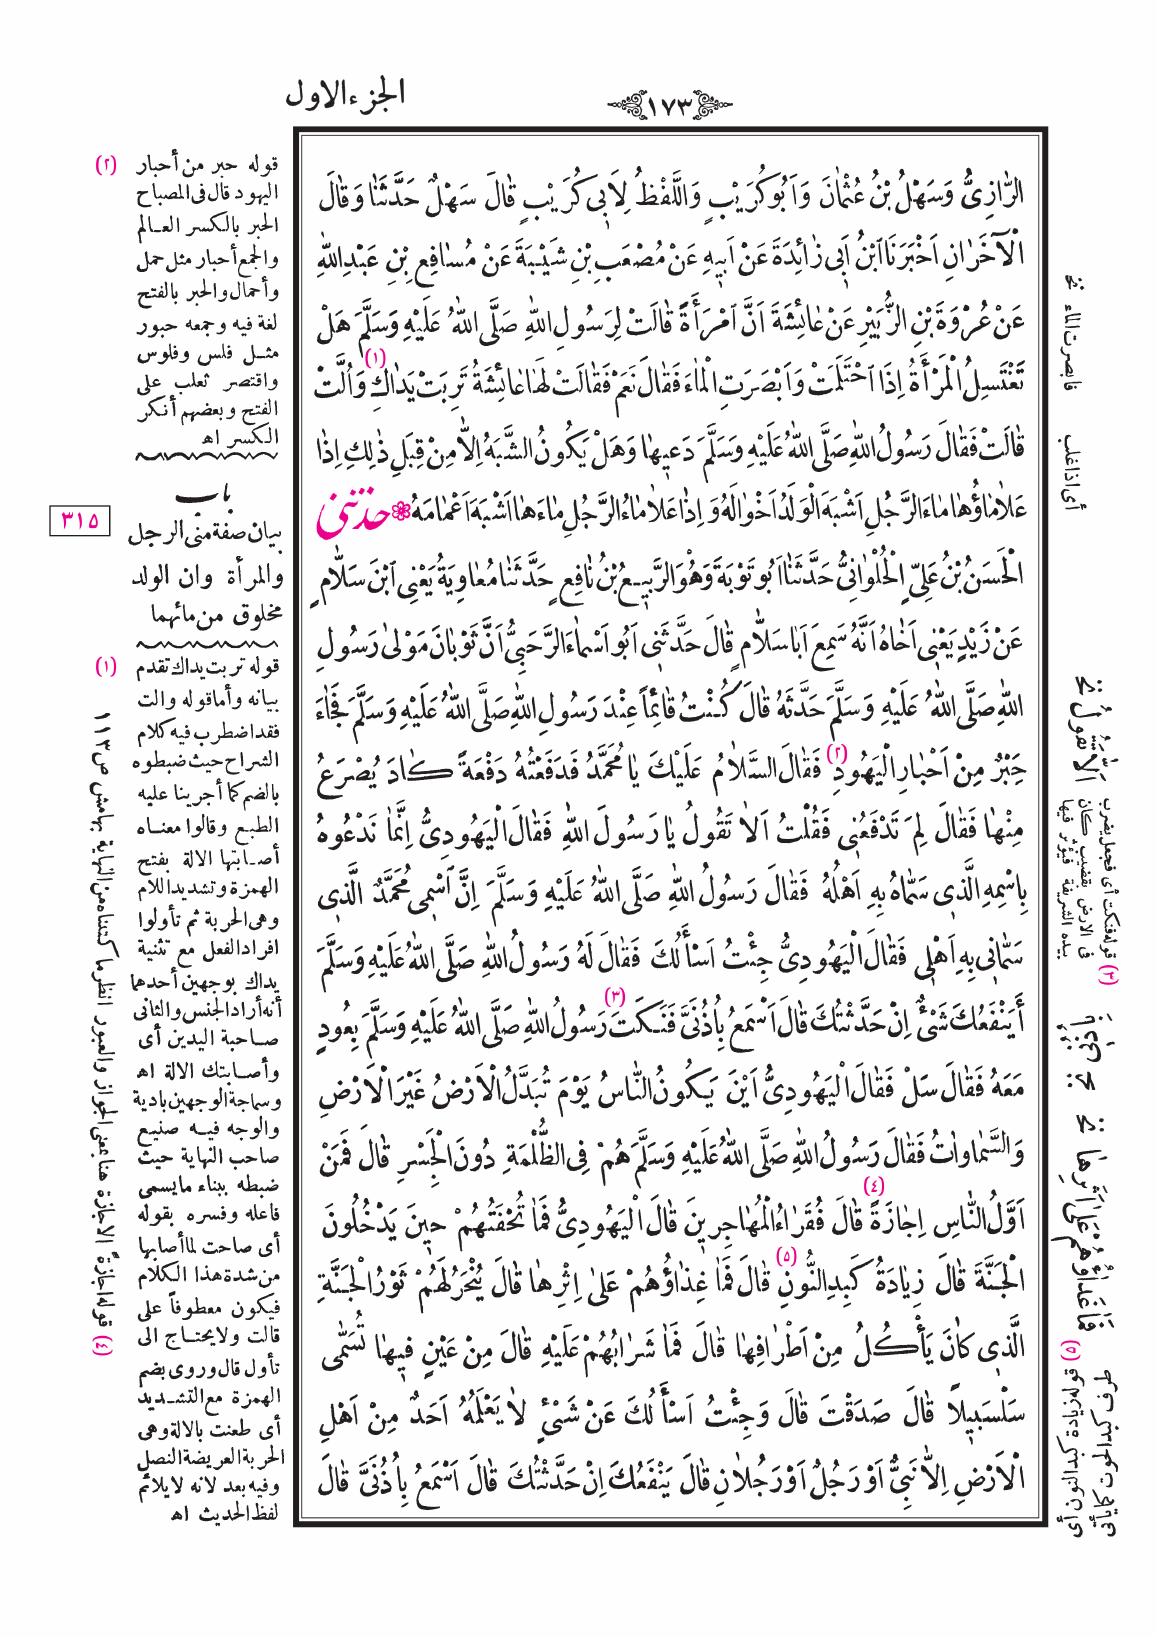 الجزء الاول
١٧٣
الرَّازِىُّ وَسَهْلُ بْنُ عُثْمَانَ وَاَبُو كُرَيْبٍ وَاللَّفْظُ لِاَبِى كُرَيْبٍ قَالَ سَهْلٌ حَدَّثَنَا وَقَالَ
الْآخَرَانِ اَخْبَرَنَا ابْنُ اَبِى زَائِدَةَ عَنْ اَبِيهِ عَنْ مُصْعَبِ بْنِ شَيْبَةَ عَنْ مُسَافِعِ بْنِ عَبْدِ اللّٰهِ
عَنْ عُرْوَةَ بْنِ الزُّبَيْرِ عَنْ عَائِشَةَ اَنَّ امْرَأَةً قَالَتْ لِرَسُولِ اللّٰهِ صَلَّى اللّٰهُ عَلَيْهِ وَسَلَّمَ هَلْ
تَغْتَسِلُ الْمَرْأَةُ اِذَا احْتَلَمَتْ وَاَبْصَرَتِ الْمَاءَ فَقَالَ نَعَمْ فَقَالَتْ لَهَا عَائِشَةُ تَرِبَتْ يَدَاكِ (١) وَاُلَّتْ
قَالَتْ فَقَالَ رَسُولُ اللّٰهِ صَلَّى اللّٰهُ عَلَيْهِ وَسَلَّمَ دَعِيهَا وَهَلْ يَكُونُ الشَّبَهُ اِلَّا مِنْ قِبَلِ ذٰلِكِ اِذَا
عَلَا مَاؤُهَا مَاءَ الرَّجُلِ اَشْبَهَ الْوَلَدُ اَخْوَالَهُ وَاِذَا عَلَا مَاءُ الرَّجُلِ مَاءَهَا اَشْبَهَ اَعْمَامَهُ ❁ حدثنى
الْحَسَنُ بْنُ عَلِىٍّ الْحُلْوَانِىُّ حَدَّثَنَا اَبُو تَوْبَةَ وَهُوَ الرَّبِيعُ بْنُ نَافِعٍ حَدَّثَنَا مُعَاوِيَةُ يَعْنِى ابْنَ سَلَّامٍ
عَنْ زَيْدٍ يَعْنِى اَخَاهُ اَنَّهُ سَمِعَ اَبَا سَلَّامٍ قَالَ حَدَّثَنِى اَبُو اَسْمَاءَ الرَّحَبِىُّ اَنَّ ثَوْبَانَ مَوْلٰى رَسُولِ
اللّٰهِ صَلَّى اللّٰهُ عَلَيْهِ وَسَلَّمَ حَدَّثَهُ قَالَ كُنْتُ قَائِمًا عِنْدَ رَسُولِ اللّٰهِ صَلَّى اللّٰهُ عَلَيْهِ وَسَلَّمَ فَجَاءَ
حِبْرٌ مِنْ اَحْبَارِ الْيَهُودِ (٢) فَقَالَ السَّلَامُ عَلَيْكَ يَا مُحَمَّدُ فَدَفَعْتُهُ دَفْعَةً كَادَ يُصْرَعُ
مِنْهَا فَقَالَ لِمَ تَدْفَعُنِى فَقُلْتُ اَلَا تَقُولُ يَا رَسُولَ اللّٰهِ فَقَالَ الْيَهُودِىُّ اِنَّمَا نَدْعُوهُ
بِاسْمِهِ الَّذِى سَمَّاهُ بِهِ اَهْلُهُ فَقَالَ رَسُولُ اللّٰهِ صَلَّى اللّٰهُ عَلَيْهِ وَسَلَّمَ اِنَّ اسْمِى مُحَمَّدٌ الَّذِى
سَمَّانِى بِهِ اَهْلِى فَقَالَ الْيَهُودِىُّ جِئْتُ اَسْأَلُكَ فَقَالَ لَهُ رَسُولُ اللّٰهِ صَلَّى اللّٰهُ عَلَيْهِ وَسَلَّمَ
أَيَنْفَعُكَ شَىْءٌ اِنْ حَدَّثْتُكَ قَالَ اَسْمَعُ بِاُذُنَىَّ فَنَكَتَ (٣) رَسُولُ اللّٰهِ صَلَّى اللّٰهُ عَلَيْهِ وَسَلَّمَ بِعُودٍ
مَعَهُ فَقَالَ سَلْ فَقَالَ الْيَهُودِىُّ اَيْنَ يَكُونُ النَّاسُ يَوْمَ تُبَدَّلُ الْاَرْضُ غَيْرَ الْاَرْضِ
وَالسَّمَاوَاتُ فَقَالَ رَسُولُ اللّٰهِ صَلَّى اللّٰهُ عَلَيْهِ وَسَلَّمَ هُمْ فِى الظُّلْمَةِ دُونَ الْجَسْرِ قَالَ فَمَنْ
اَوَّلُ النَّاسِ اِجَازَةً (٤) قَالَ فُقَرَاءُ الْمُهَاجِرِينَ قَالَ الْيَهُودِىُّ فَمَا تُحْفَتُهُمْ حِينَ يَدْخُلُونَ
الْجَنَّةَ قَالَ زِيَادَةُ كَبِدِ النُّونِ (٥) قَالَ فَمَا غِذَاؤُهُمْ عَلٰى اِثْرِهَا قَالَ يُنْحَرُ لَهُمْ ثَوْرُ الْجَنَّةِ
الَّذِى كَانَ يَأْكُلُ مِنْ اَطْرَافِهَا قَالَ فَمَا شَرَابُهُمْ عَلَيْهِ قَالَ مِنْ عَيْنٍ فِيهَا تُسَمّٰى
سَلْسَبِيلاً قَالَ صَدَقْتَ قَالَ وَجِئْتُ اَسْأَلُكَ عَنْ شَىْءٍ لَا يَعْلَمُهُ اَحَدٌ مِنْ اَهْلِ
الْاَرْضِ اِلَّا نَبِىٌّ اَوْ رَجُلٌ اَوْ رَجُلَانِ قَالَ يَنْفَعُكَ اِنْ حَدَّثْتُكَ قَالَ اَسْمَعُ بِاُذُنَىَّ قَالَ
فابصرت الماء نخ
أى اذا غلب
اَلَا تَقُولُ نخ
(٣) قوله فنكت أى فجعل يضرب
فى الارض بقضيب كان
بيده الشريفة فيؤثر فيها
فَمَا غَدَاؤُهُمْ عَلٰى اَثَرِهَا نخ
(٥) قوله زيادة كبد النون أى
طرف كبد الحوت كما يأتى
(٢) قوله حبر من أحبار
اليهود قال فى المصباح
الحبر بالكسر العالم
والجمع أحبار مثل حمل
وأحمال والحبر بالفتح
لغة فيه وجمعه حبور
مثل فلس وفلوس
واقتصر ثعلب على
الفتح وبعضهم أنكر
الكسر اه
باب
٣١٥
بيان صفة منى الرجل
والمرأة وان الولد
مخلوق من مائهما
(١) قوله تربت يداك تقدم
بيانه وأما قوله والت
فقد اضطرب فيه كلام
الشراح حيث ضبطوه
بالضم كما أجرينا عليه
الطبع وقالوا معناه
أصابتها الالة بفتح
الهمزة وتشديد اللام
وهى الحربة ثم تأولوا
افراد الفعل مع تثنية
يداك بوجهين أحدهما
أنه أراد الجنس والثانى
صاحبة اليدين أى
وأصابتك الالة اه
وسماجة الوجهين بادية
والوجه فيه صنيع
صاحب النهاية حيث
ضبطه ببناء ما يسمى
فاعله وفسره بقوله
أى صاحت لما أصابها
من شدة هذا الكلام
فيكون معطوفاً على
قالت ولا يحتاج الى
تأول قال وروى بضم
الهمزة مع التشديد
أى طعنت بالالة وهى
الحربة العريضة النصل
وفيه بعد لانه لا يلائم
لفظ الحديث اه
(٤) قوله اجازةً الاجازة هنا بمعنى الجواز والعبور انظر ما كتبناه من النهاية بهامش ص ١١٣